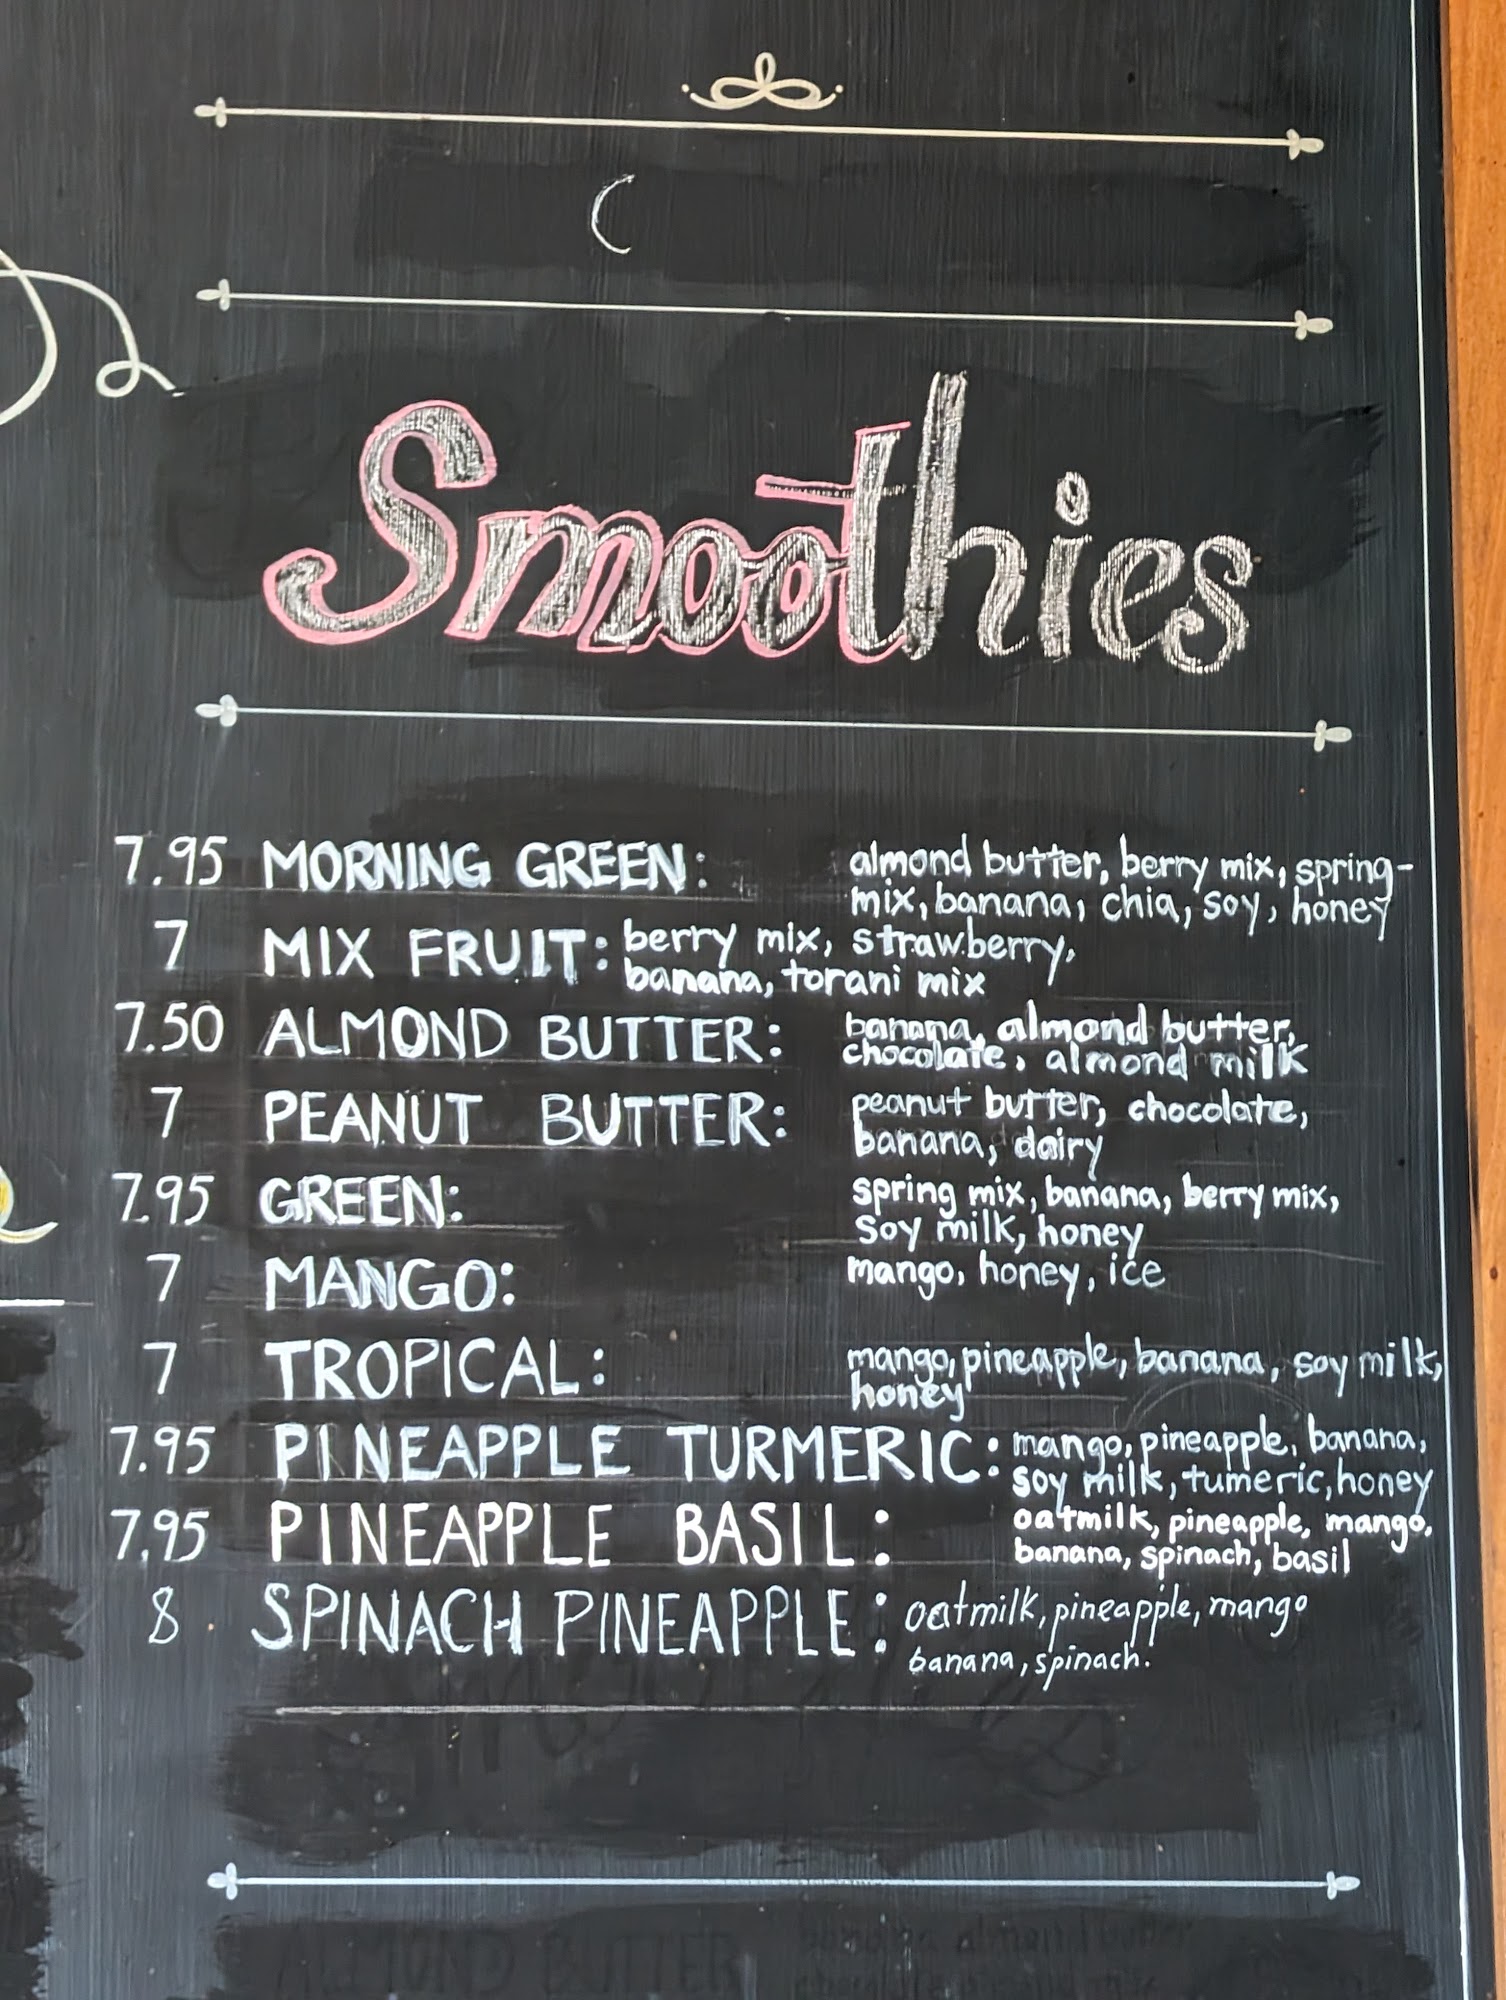 (
Smoothies
7.95 MORNING GREEN: almond butter, berry mix, spring-
mix, banana, chia, soy, honey
7 MIX FRUIT: berry mix, strawberry,
banana, torani mix
7.50 ALMOND BUTTER: banana, almond butter,
chocolate, almond milk
7 PEANUT BUTTER: peanut butter, chocolate,
banana, dairy
7.95 GREEN: spring mix, banana, berry mix,
soy milk, honey
7 MANGO: mango, honey, ice
7 TROPICAL: mango, pineapple, banana, soy milk,
honey
7.95 PINEAPPLE TURMERIC: mango, pineapple, banana,
soy milk, tumeric, honey
7.95 PINEAPPLE BASIL: oatmilk, pineapple, mango,
banana, spinach, basil
8. SPINACH PINEAPPLE: oatmilk, pineapple, mango
banana, spinach.
ALMOND BUTTER